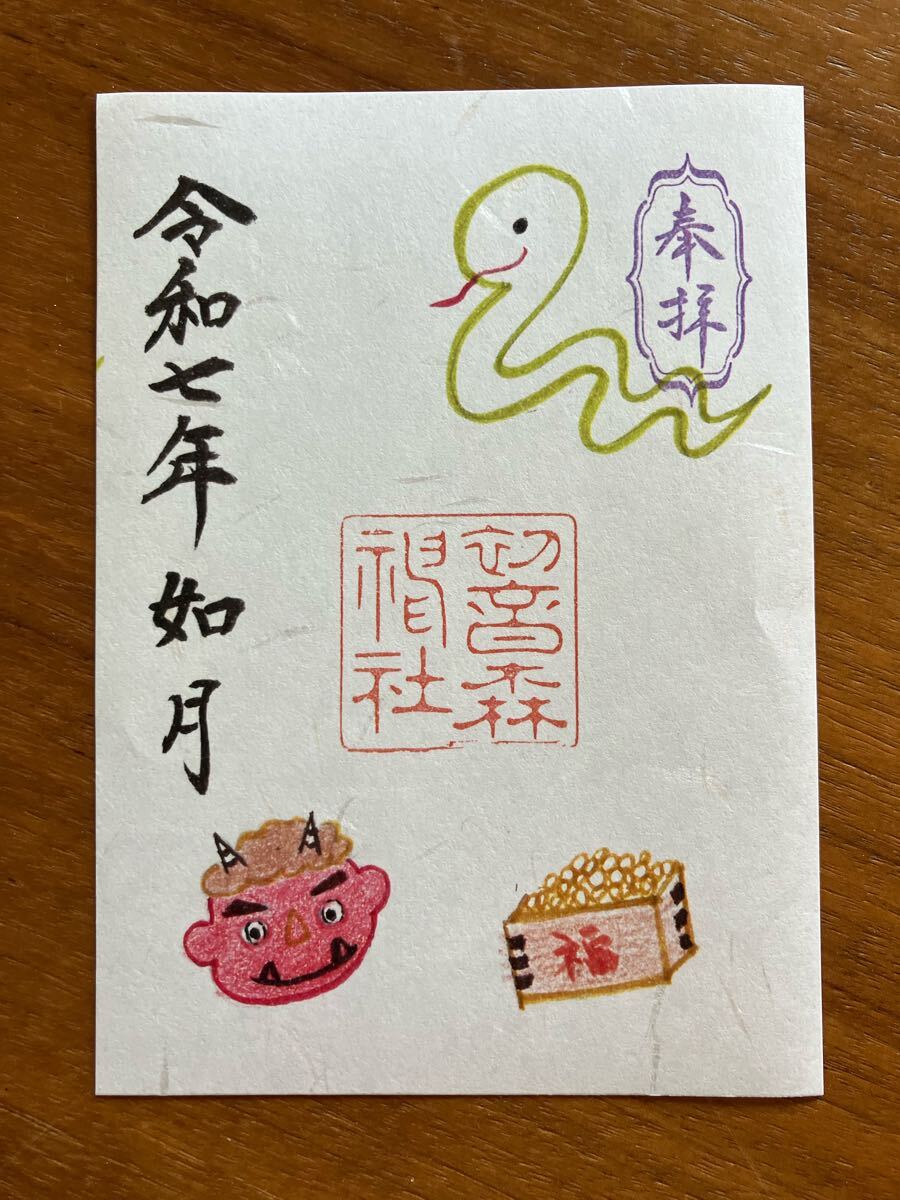 奉拝
初音森
神社
令和七年如月
福